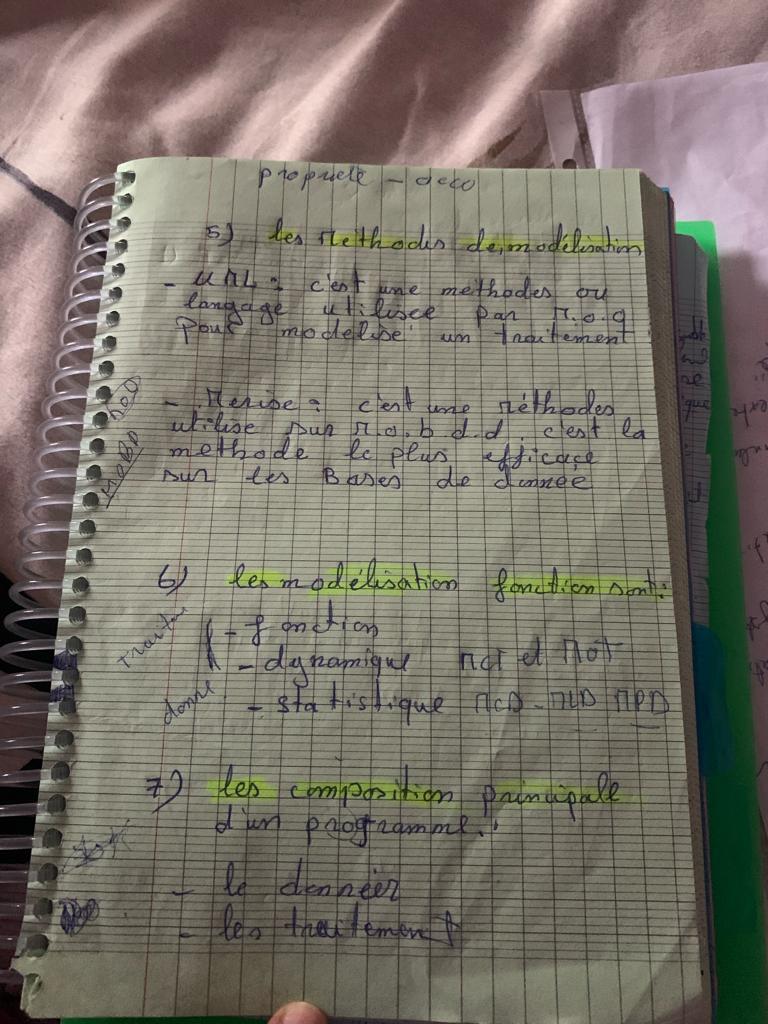 propriete - deco
5) les Méthodes de modélisation
- UML : c'est une methodes ou
langage utilisee par M.O.O
pour modelise un traitement
- Merise : c'est une Méthodes
utilise sur M.O.b.d.d. c'est la
methode le plus efficace
sur les Bases de donnee
6) les modélisation fonction sont :
- fonction
- dynamique MCT et MOT
- statistique MCD - MLD MPD
donne
7) les composition principale
d'un programme :
- le données
- les traitement